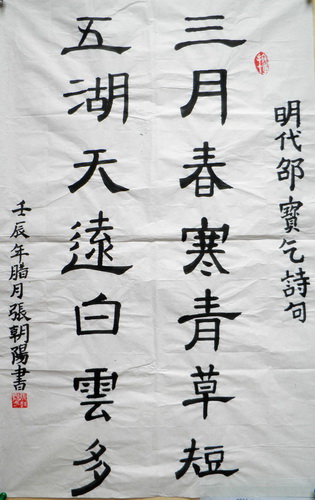 明代邵寶乞詩句
三月春寒青草短
五湖天遠白雲多
壬辰年腊月張朝陽書